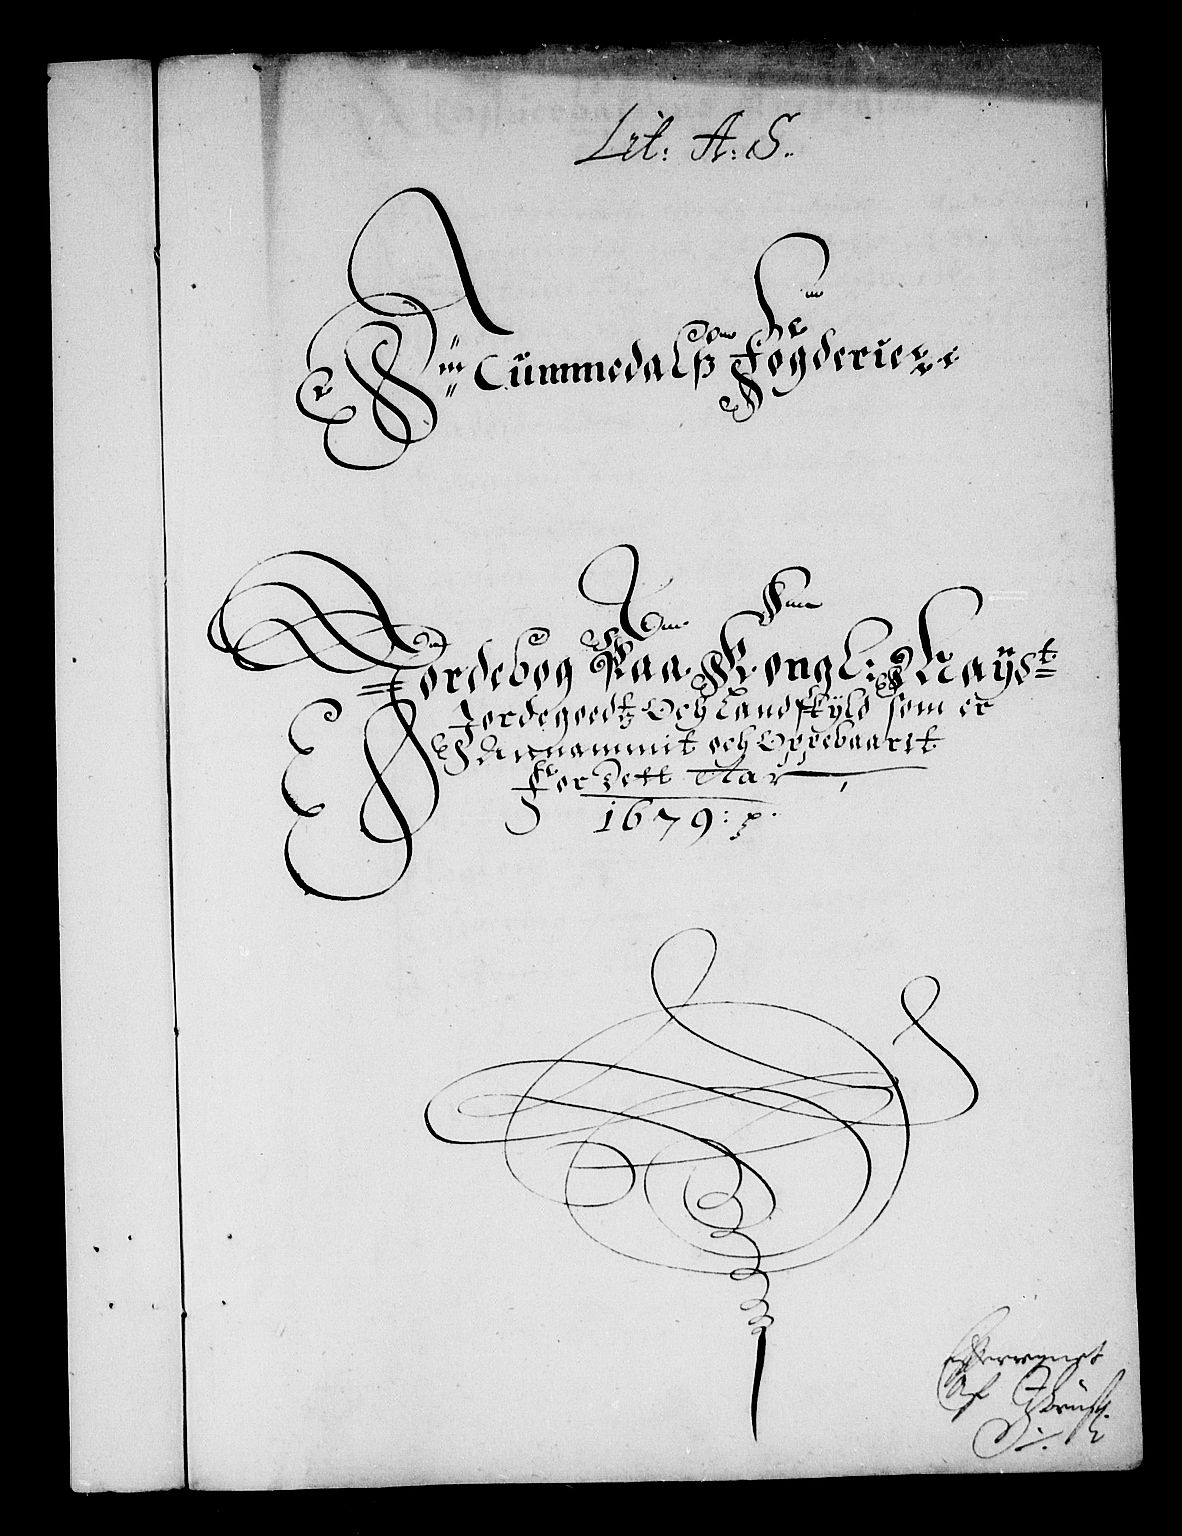 Lit: A: S.
Nummedalß Fögderie
Jordebog Paa Kongl: Mayst:
Jordegoedtz Och Landskyld som er
Annammit och Oppebaarit
For Dett Aar
1679: p.